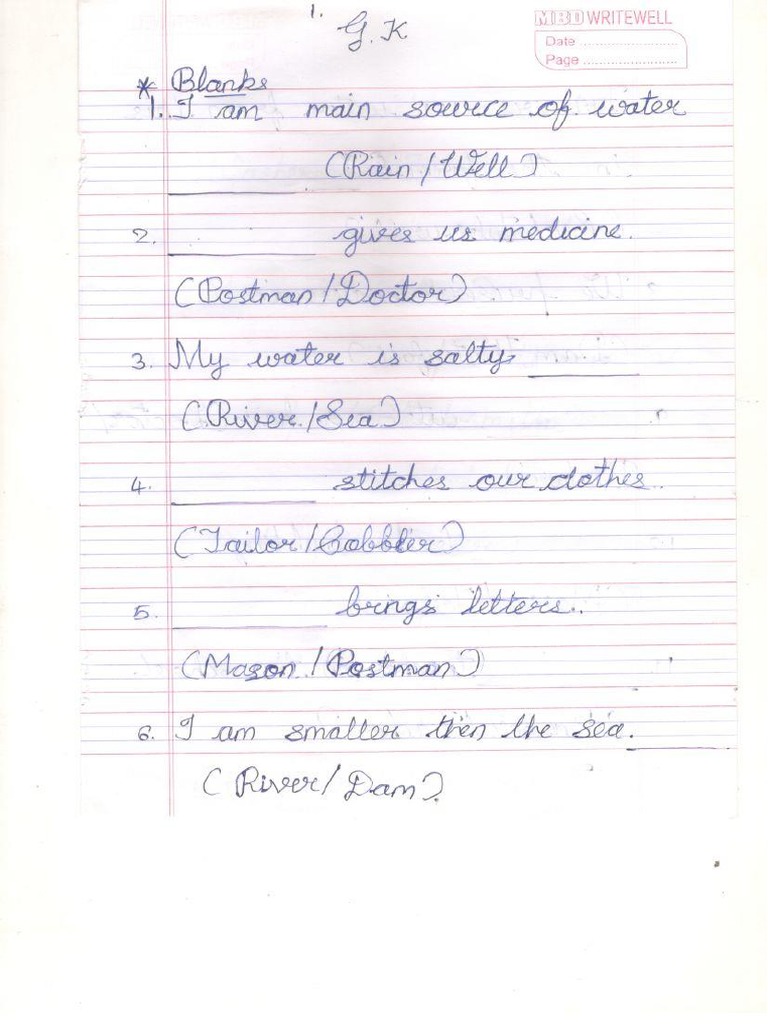 1.
G.K
MBD WRITEWELL
Date ....................
Page ....................
* Blanks
1. I am main source of water
__________ (Rain / Well)
2. __________ gives us medicine.
(Postman / Doctor)
3. My water is salty __________
(River / Sea)
4. __________ stitches our clothes.
(Tailor / Cobbler)
5. __________ brings letters.
(Mason / Postman)
6. I am smaller then the sea. __________
(River / Dam).